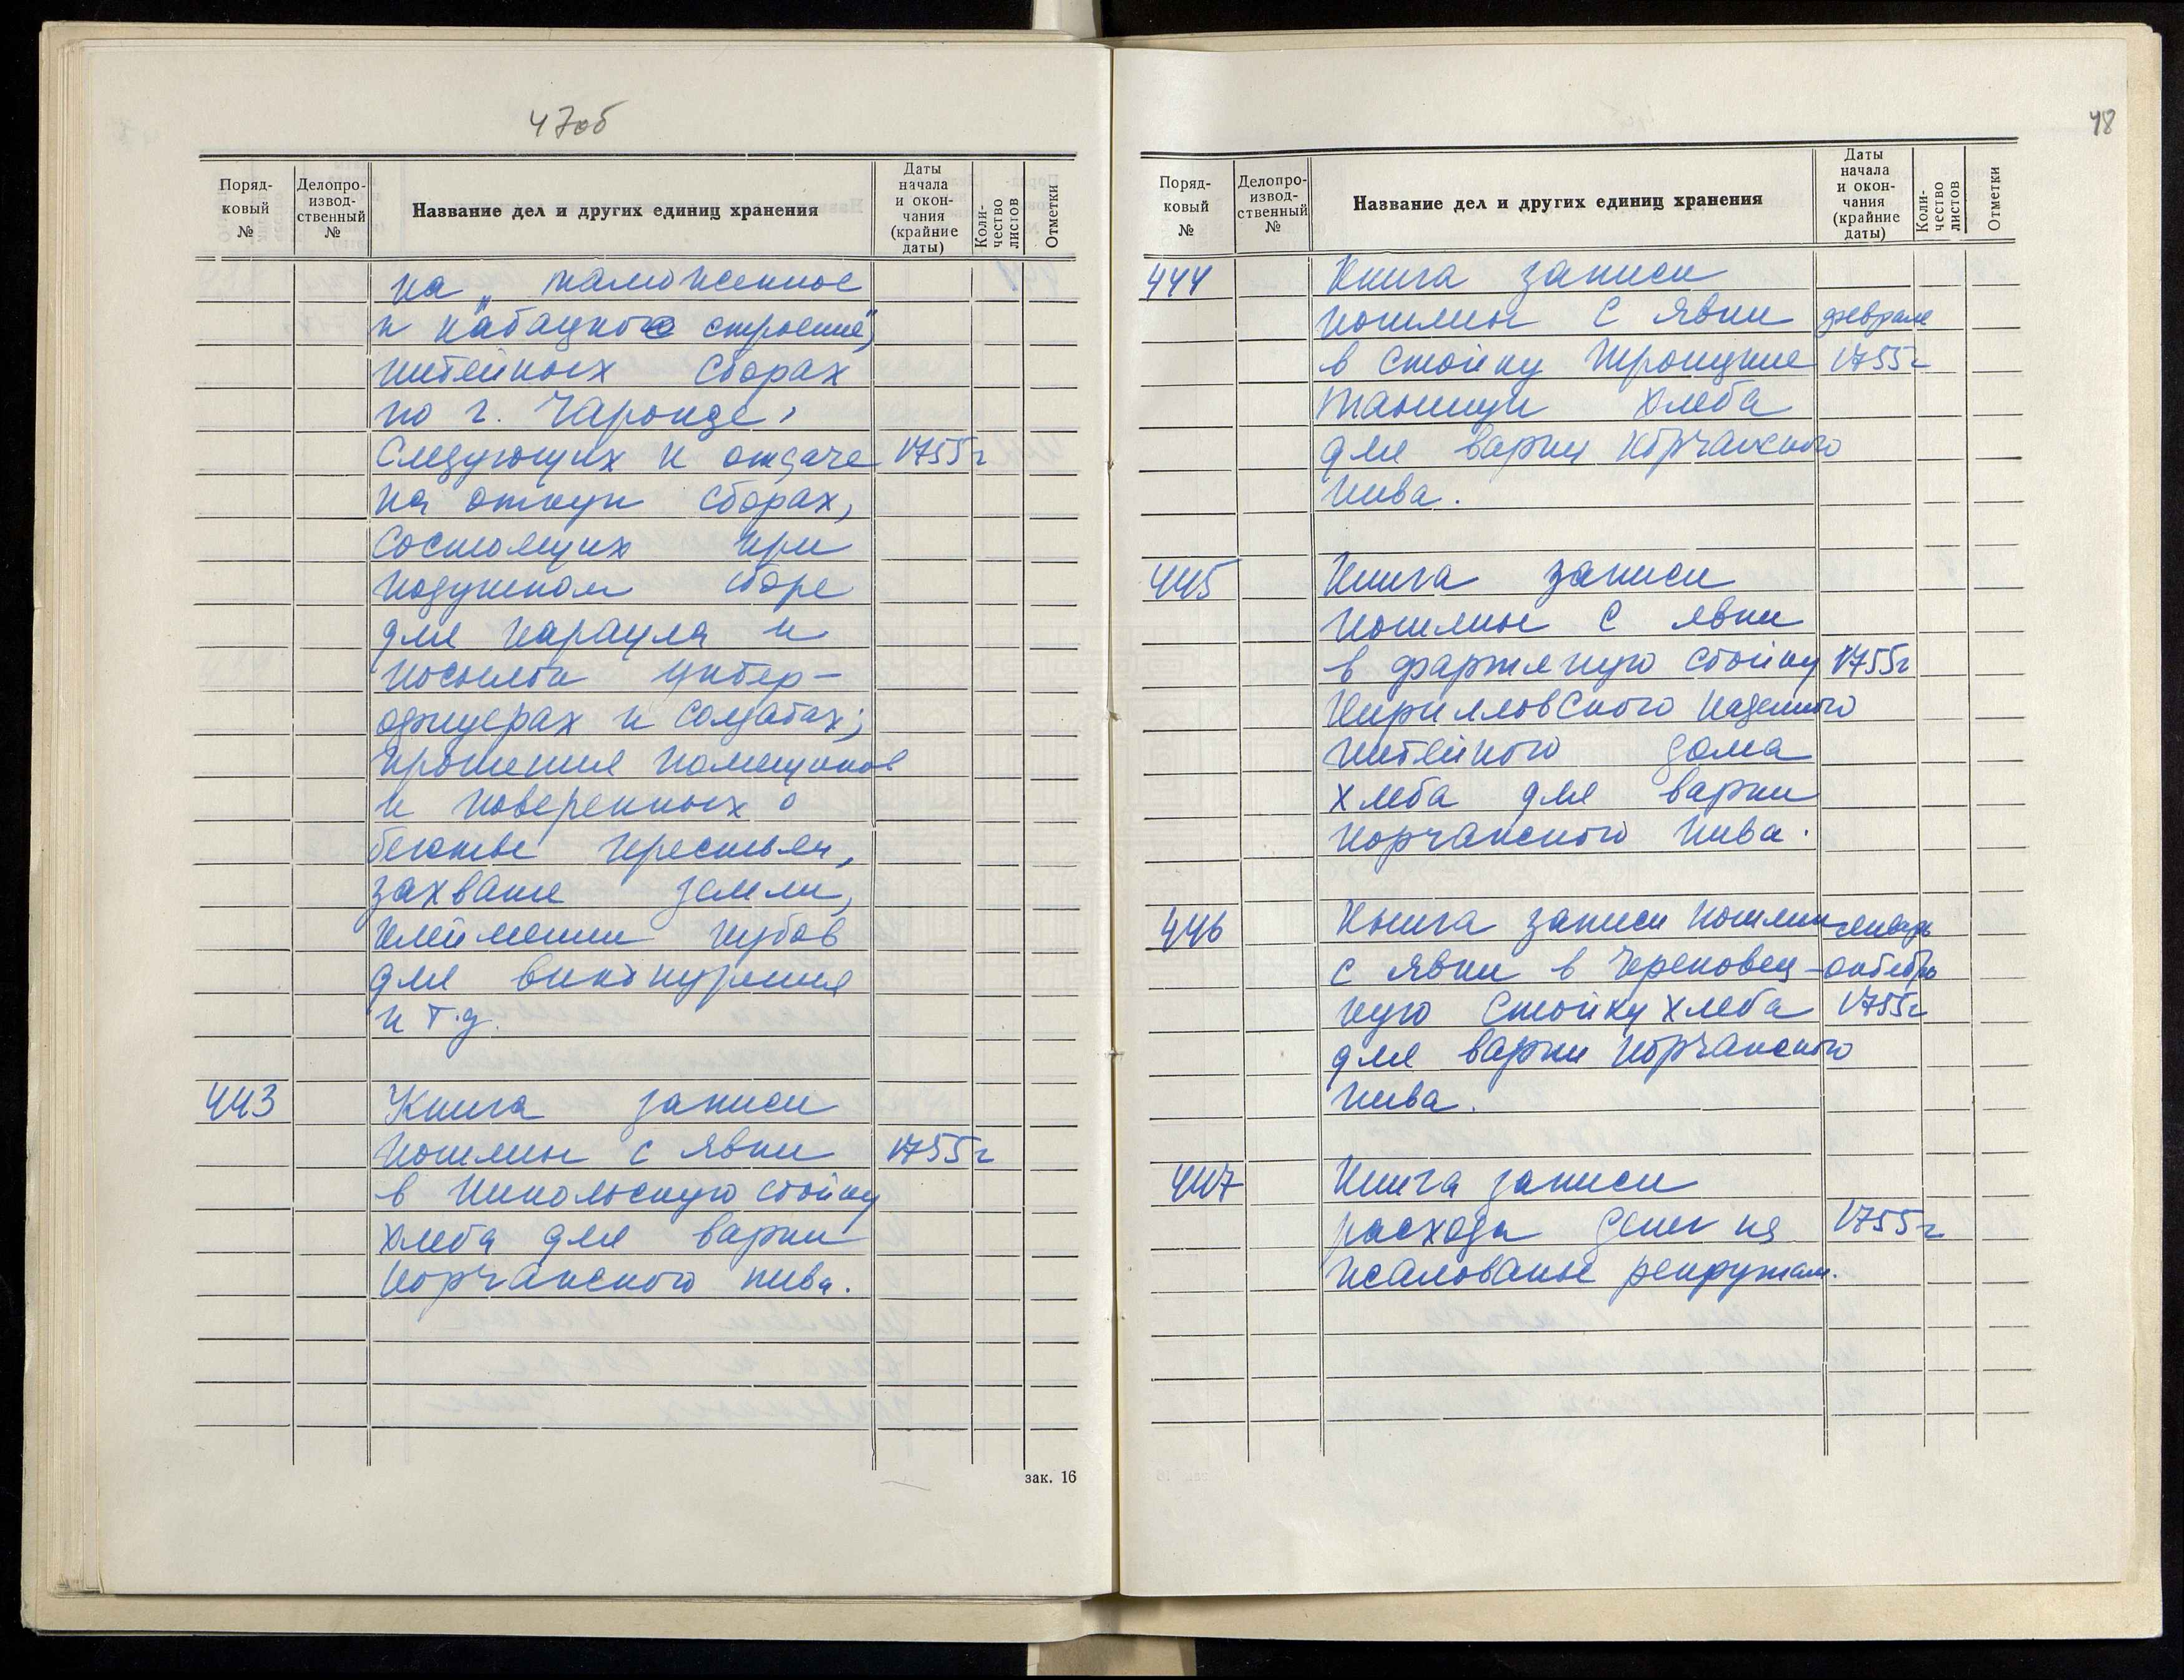 47об
Поряд-
ковый
№
Делопро-
извод-
ственный
№
Название дел и других единиц хранения
Даты
начала
и окон-
чания
(крайние
даты)
Коли-
чество
листов
Отметки
на „таможенное
и кабацкое строение",
питейных сборах
по г. Чаронде,
следующих к отдаче 1755г
на откуп сборах,
состоящих при
подушном сборе
для караула и
посылки унтер-
офицерах и солдатах;
прошения помещиков
и поверенных о
бегстве крестьян,
захвате земли,
клеймении кубов
для винокурения
и т.д.
443 Книга записи
пошлины с явки 1755г
в Никольскую стойку
хлеба для варки
корчажного пива.
зак. 16
48
Поряд-
ковый
№
Делопро-
извод-
ственный
№
Название дел и других единиц хранения
Даты
начала
и окон-
чания
(крайние
даты)
Коли-
чество
листов
Отметки
444 Книга записи
пошлины с явки февраль
в стойку Троицкие 1755г
хлеба
для варки корчажного
пива.
445 Книга записи
пошлины с явки
в фартяную стойку 1755г
Кирилловского казенного
питейного дома
хлеба для варки
корчажного пива.
446 Книга записи пошлин январь
с явки в Череповец- октябрь
кую стойку хлеба 1755г
для варки корчажного
пива.
447 Книга записи
расхода денег на 1755г
жалованье рекрутам.